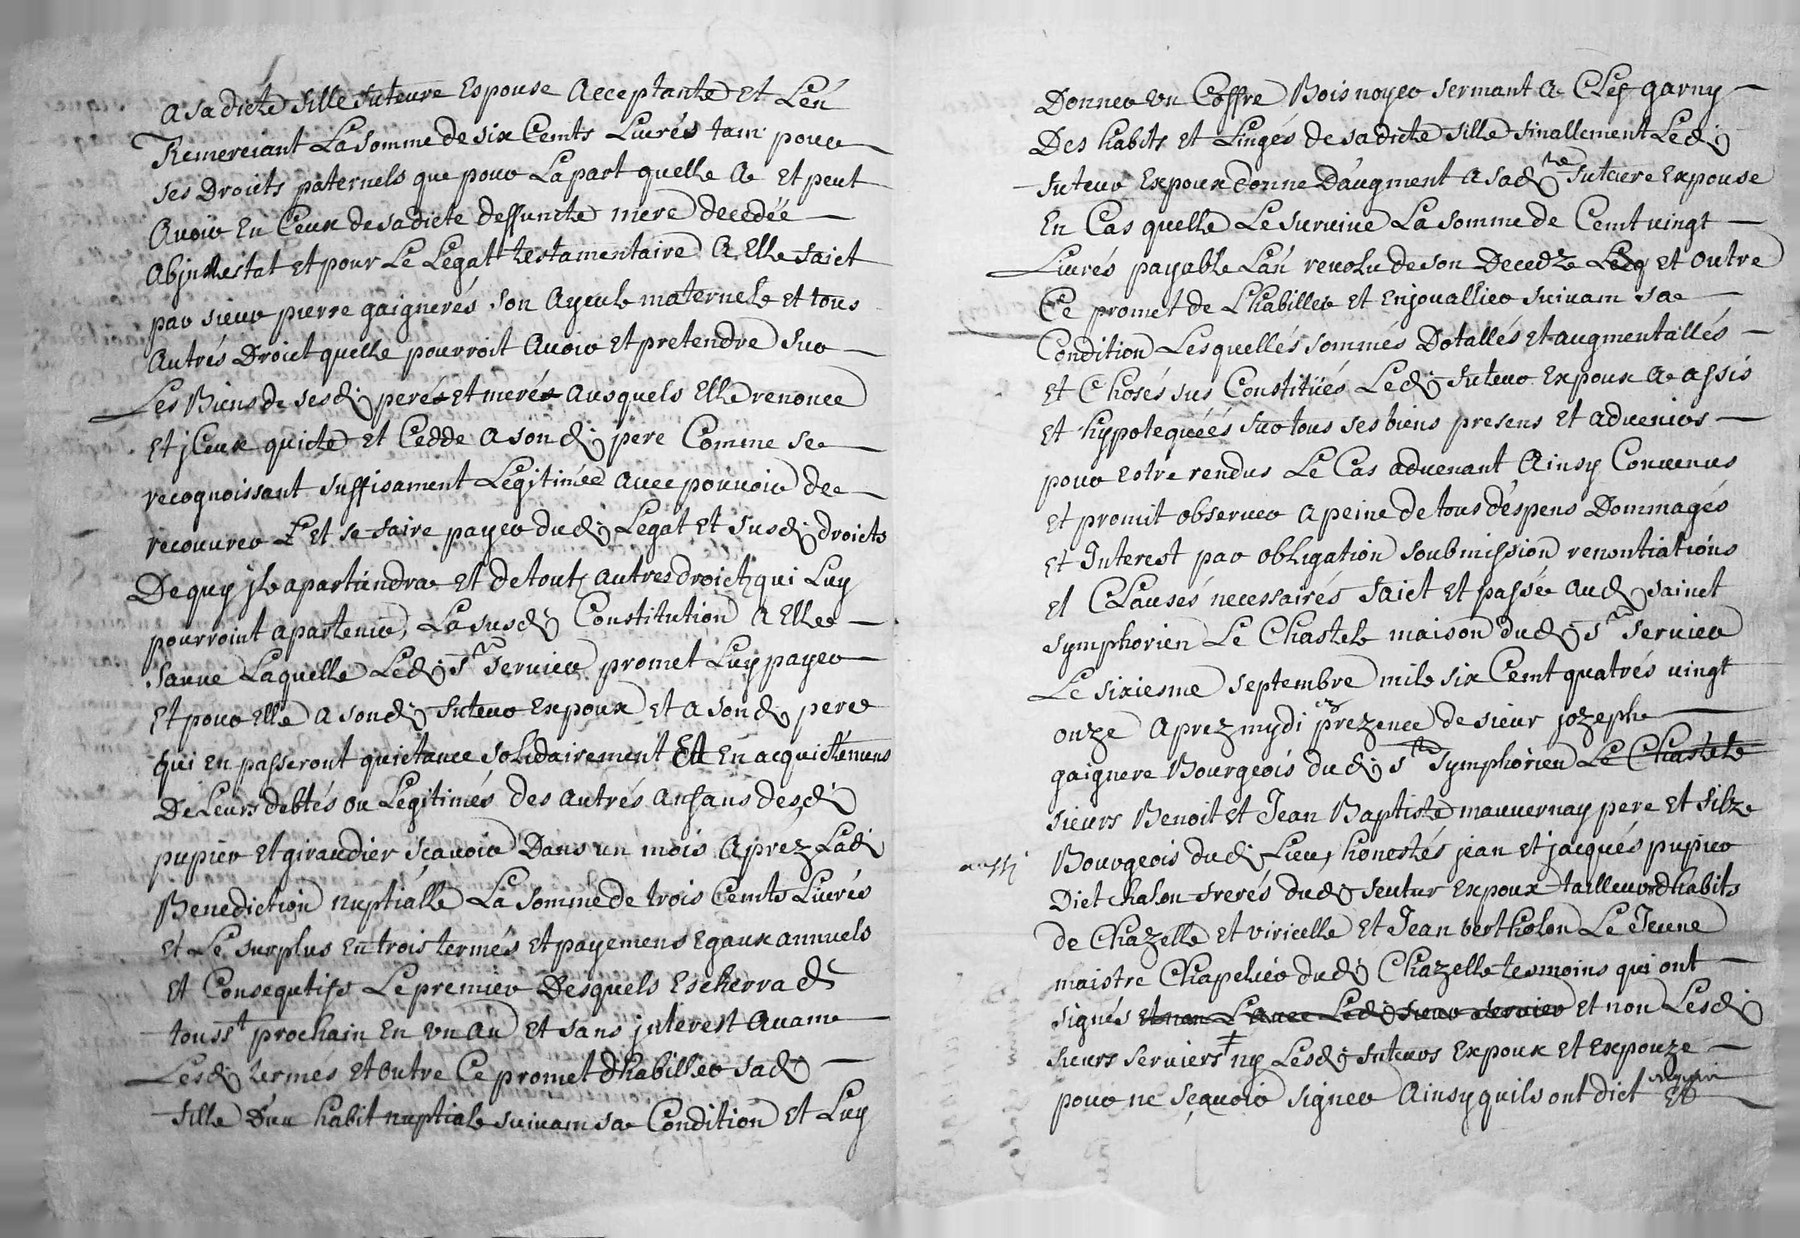 a sa dicte fille future Espouse acceptante et L'en
Remerciant La somme de six Cents Livrés tam pour
ses Droicts paternels que pour La part quelle a et peut
avoir En Ceux de sa dicte deffuncte mere decedée
abjntestat et pour Le Legat testamentaire a Elle faict
par sieur pierre gaignerés son ayeule maternele et tous
autrés Droict quelle pourroit avoir et pretendre sur
Les Biens de sesd pere et mere ausquels Elle renonce
et jCeux quicte et Cedde a son d pere Comme se
recognoissant suffisament Legitimée avec pouvoir de
recouvrer et se faire payer dud Legat et susd droicts
De quy jl apartiendra et de tout autres droict qui Luy
pourroint apartenir, La susd Constitution a Elle
sauve Laquelle Led Sr servier promet Luy payer
et pour Elle a sond futeur Expoux et a sond pere
qui en passeront quictance solidairement Et En acquictemens
De Leurs debtés ou Legitimés des autrés anfans desd
pupier et giraudier sçavoir Dans un mois aprez Lad
Benediction nuptialle La somme de trois Cemts Livrés
et Le surplus en trois termés et payemens egaux annuels
et Consequtifs Le premier Desquels Escherra d
tousst prochain En un an et sans jnterest avam
Lesd termés et outre Ce promet d'habiller sad
fille D'un habit nuptiale suivam sa Condition et Luy
Donner un Coffre Bois noyer fermant a Clef garny
Des habits et Lingés de sa dicte fille finallement Led
futeur Expoux donne D'augment a sad te future Expouse
En Cas quelle Le survive La somme de Cemt vingt
Livrés payable L'an revolu de son Decedz et outre
Ce promet de L'habiller et Enjouallier suivam sa
Condition Lesquellés sommés Dotallés et augmentallés
et Chosés sus Constitués Led futeur Expoux a assis
et hypotequéés sur tous ses biens presens et advenirs
pour estre rendus Le Cas advenant ainsy Convenus
et promit observer a peine de tous d'espens Dommagés
et Interest par obligation soubmission renontiations
et Clausés necessairés faict et passée aud sainct
symphorien Le Chastele maison dud Sr servier
Le sixiesme septembre mile six Cemt quatrés vingt
onze aprez mydi prezence de sieur jozephe
gaignere Bourgeois dud St Symphorien Le Chastele
sieurs Benoit et Jean Baptiste mauvernay pere et filze
aussi
Bourgeois dud Lieu, honestés jean et jacqués pupier
Dict chalon frerés dud futur Expoux tailleurs d'habits
de Chazelle et viricelle et Jean bertholon Le Jeune
maistre Chapelier dud Chazelle tesmoins qui ont
signés et non L'avec Led sieur servier et non Lesd
sieurs serviers ny Lesd futeurs Expoux et Expouze
pour ne sçavoir signer ainsy quils ont dict Et